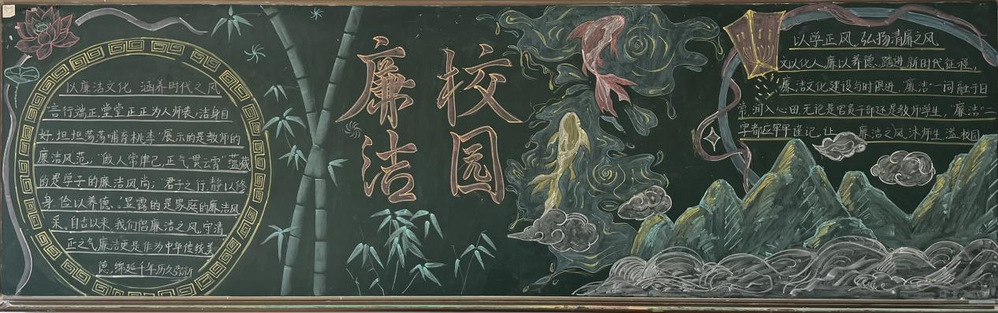 以廉洁文化 涵养时代之风
言行端正堂堂正正为人师表、洁身自
好、坦坦荡荡哺育桃李"展示的是教师的
廉洁风范,"啟人常律己,正气贯云霄"蕴藏
的是学子的廉洁风尚;"君子之行,静以修
身 俭以养德、"显露的是家庭的廉洁风
采,自古以来 我们倡廉洁之风,守清
正之气廉洁更是作为中华传统美
德,绵延千年历久弥新
校园
廉洁
以学正风,弘扬清廉之风
文以化人廉以养德,踏进新时代征程,
廉洁文化建设与时俱进,"廉洁"一同融于日
常,润人心田无论是党员干部还是教师学生,"廉洁"二
字都应牢牢谨记、让 廉洁之风、沐浴生 溢校园